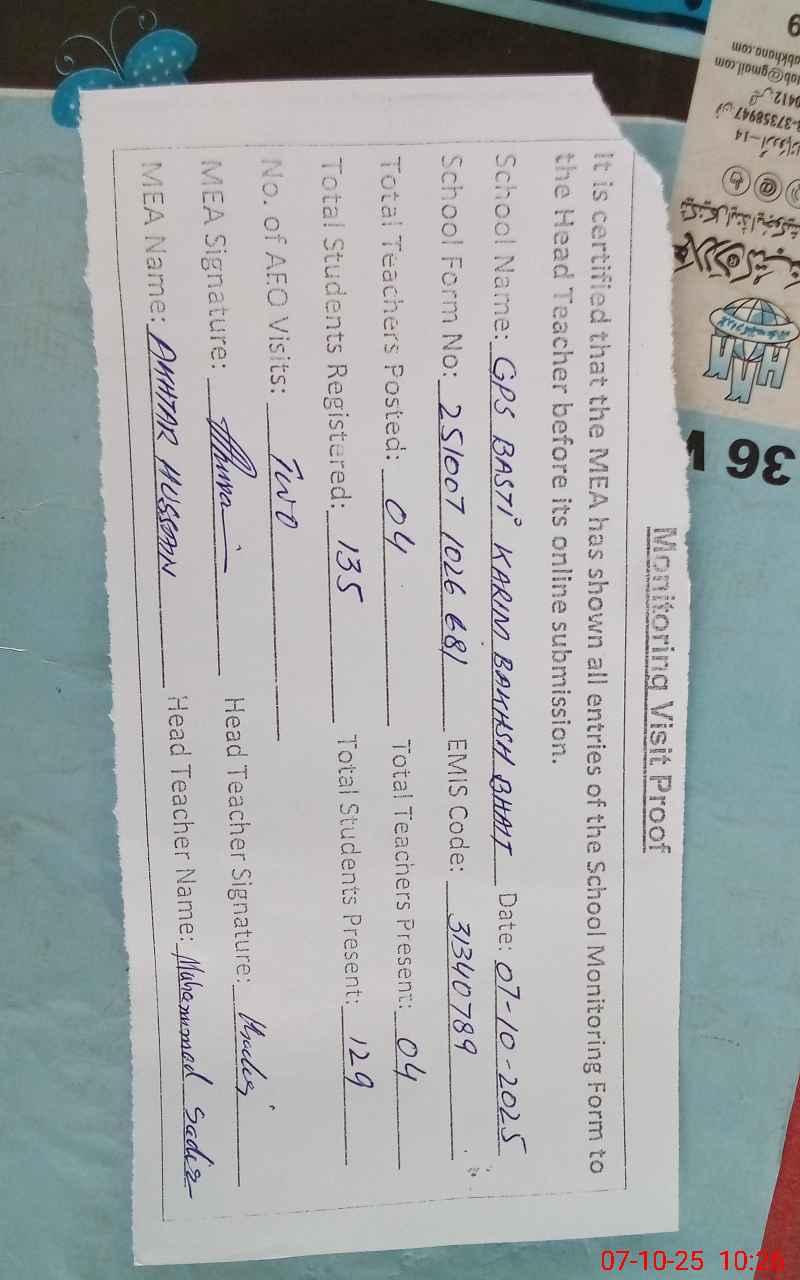 Monitoring Visit Proof
It is certified that the MEA has shown all entries of the School Monitoring Form to
the Head Teacher before its online submission.
School Name: GPS BASTI KARIM BAKHSH BHATT Date: 07-10-2025
School Form No: 251007 1026 681 EMIS Code: 31340789
Total Teachers Posted: 04 Total Teachers Present: 04
Total Students Registered: 135 Total Students Present: 129
No. of AEO Visits: Two
MEA Signature: Head Teacher Signature:
MEA Name: AKHTAR HUSSAIN Head Teacher Name: Muhammad Sadiq
36
07-10-25 10:26